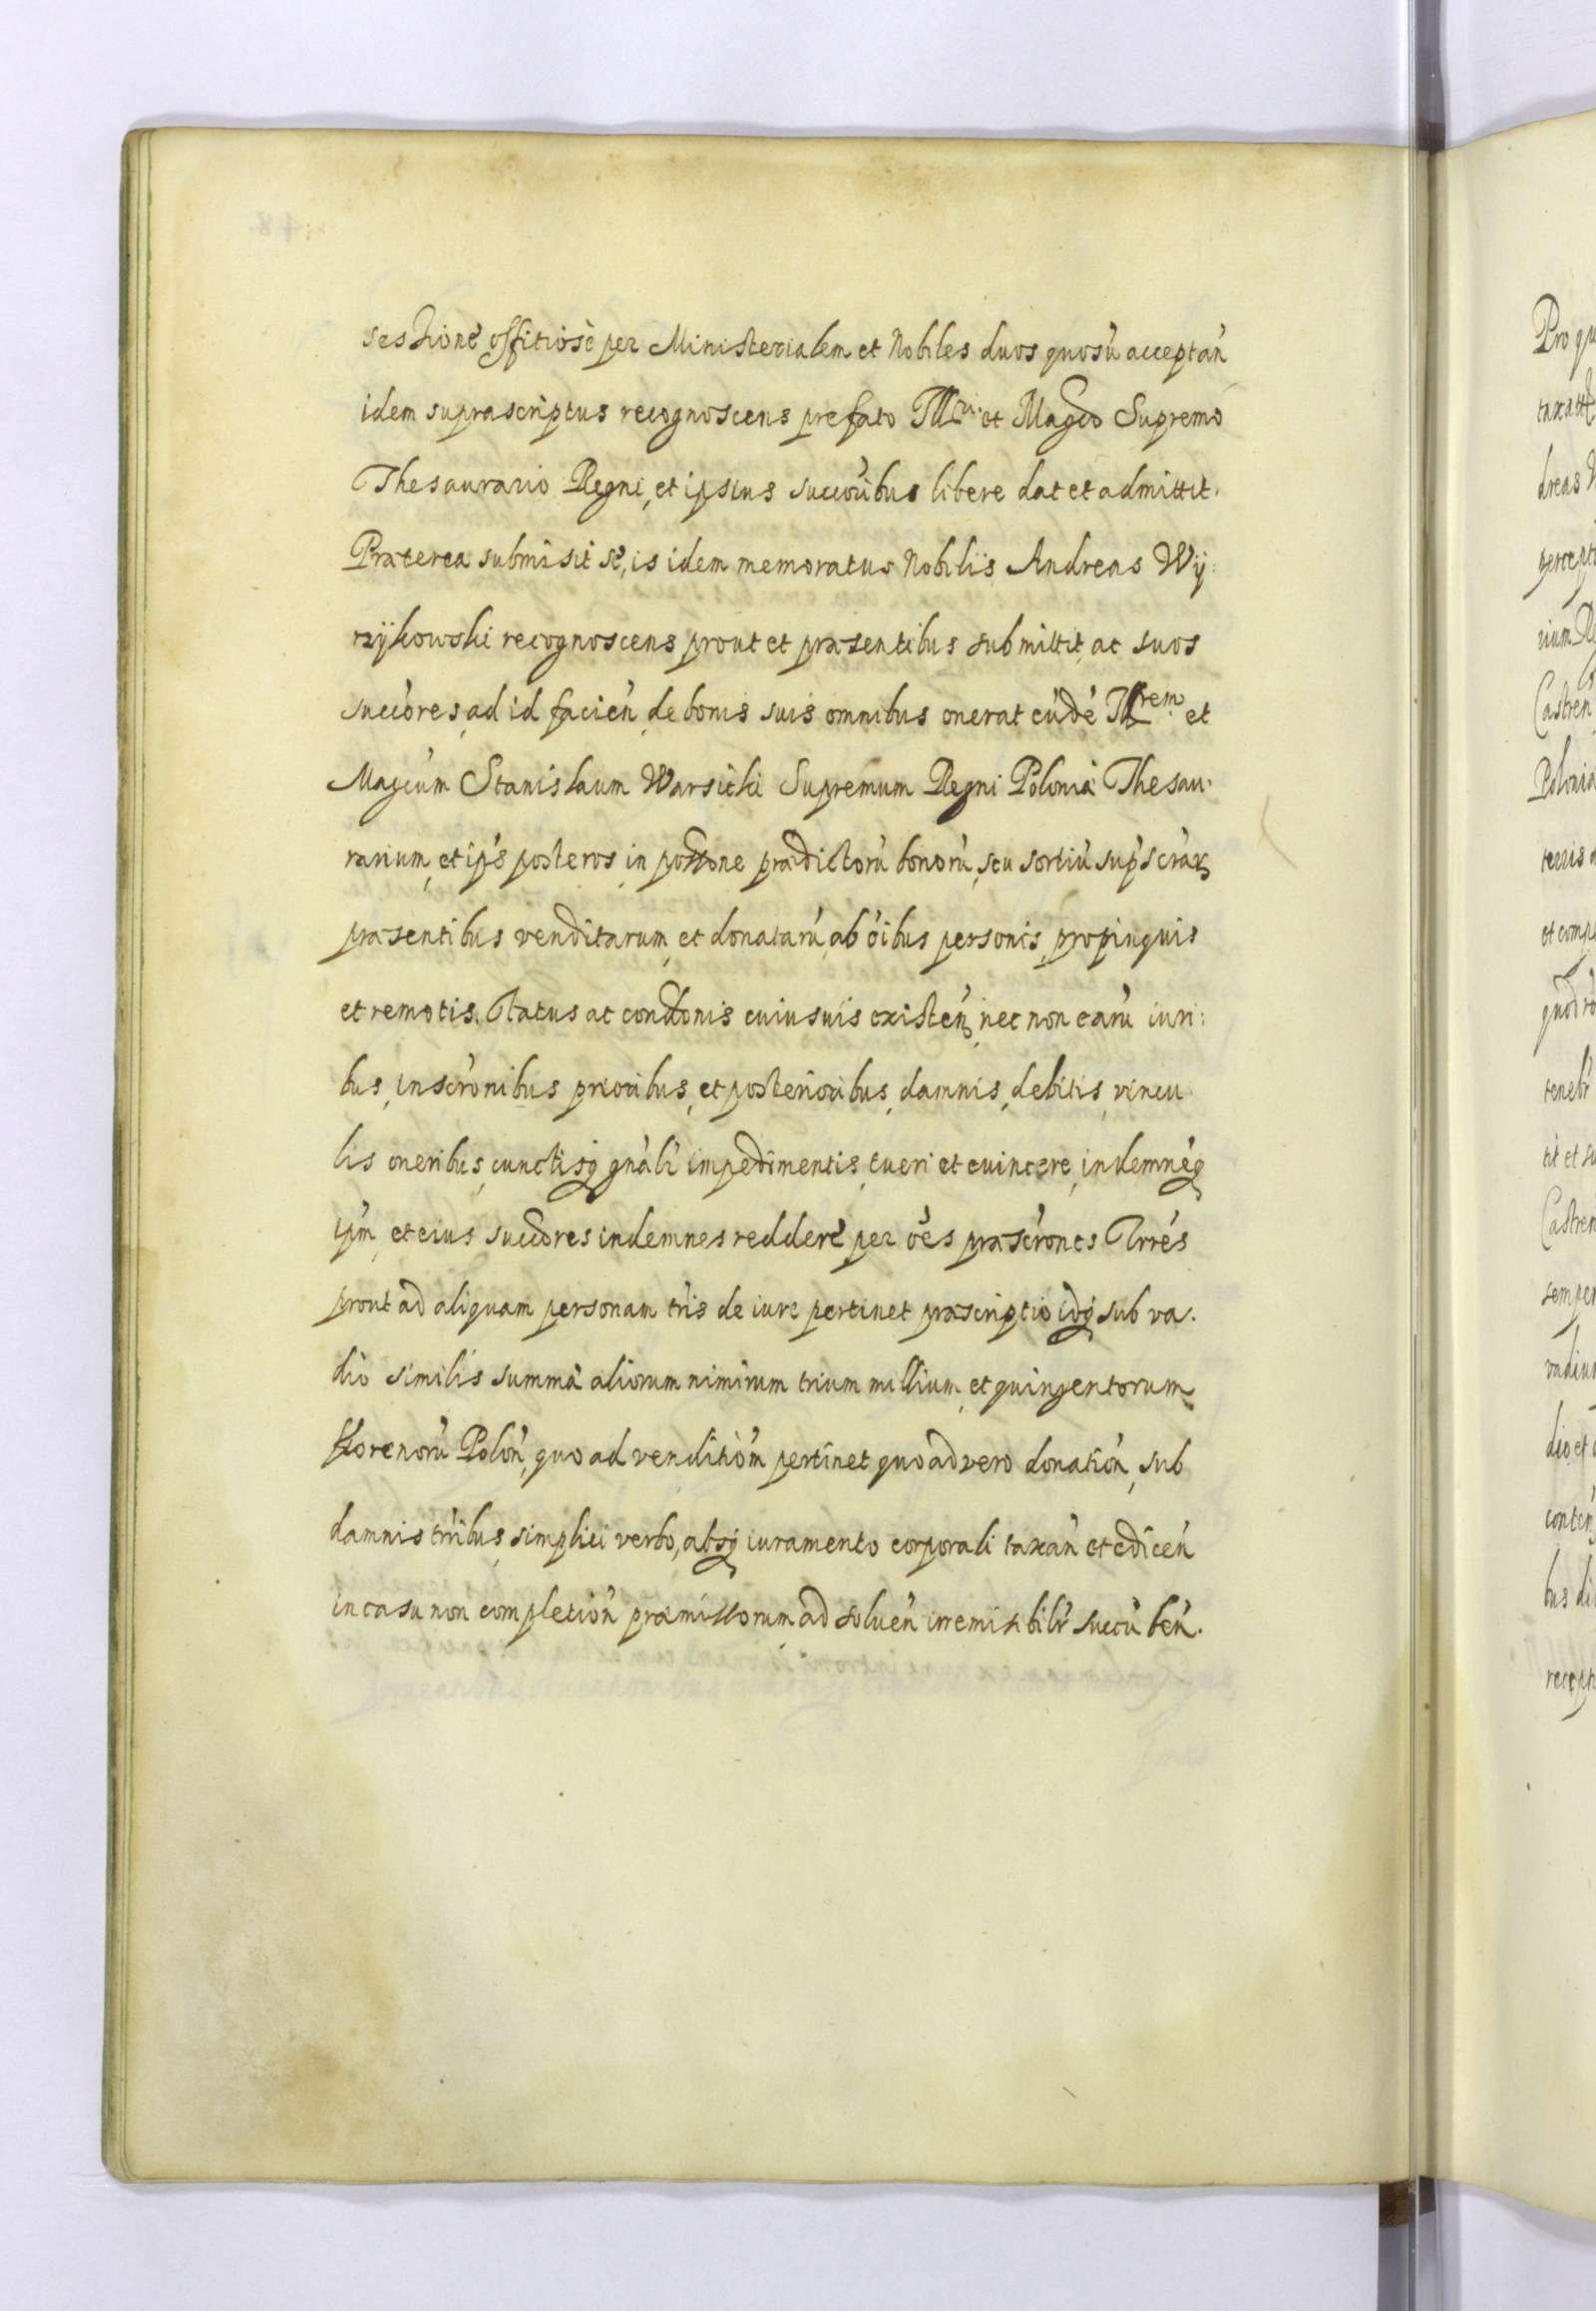 sessionē offitiosè per Ministerialem et Nobiles duos quosũ acceptań
idem suprascriptus recognoscens prefato Ill<sup>ri</sup> et Magc̃o Supremo
Thesaurario Regni, et ipsius succõribus libere dat et admittit.
Præterea submisit sé, is idem memoratus Nobilis Andreas Wÿ:
rzÿkowski recognoscens prout et præsentibus submittit, ac suos
succõres, ad id facień, de bonis suis omnibus onerat eũdẽ Ill<sup>rem</sup> et
Magcũm Stanislaum Warsicki Supremum Regni Poloniæ Thesau-
rarium, et ip̃s posteros, in possone prædictorũ bonorũ, seu sortiũ sup̃scrãꝝ
præsentibus venditarum, et donatarũ, ab õibus personis, propinquis
et remotis. Status ac condonis cuiusuis existeń, nec non earũ iuri:
bus, inscrõnibus prioribus, et posterioribus, damnis, debitis, vincu
lis oneribus, cunctisq́ gnãli impedimentis, tueri et euincere, indemnéq́
ip̃m, et eius succores indemnes redderé, per oẽs præscrõnes Trrés
prout ad aliquam personam tris de iure pertinet præscriptio idq́ sub va-
dio similis summæ aliorum nimirum trium millium, et quingentorum
florenorũ Poloń, quo ad venditiõm pertinet quo ad vero donatioń, sub
damnis trribus, simplici verbo, absq́ iuramento corporali taxań et ediceń
in casu non completioń præmissorum ad solueń irremisibilr̃ succũbeń.
Pro qu
dreas W
percept
rium Re
Castren
Polonia
terris
et comp
tenebr
tit et su
Castren
semper
vadium
dio, et
conteń
bus di
recept